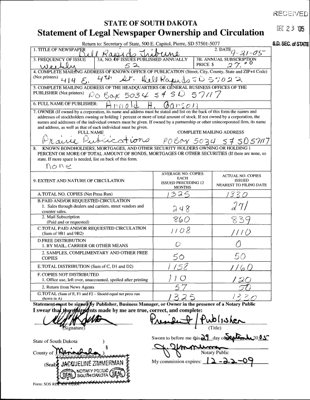 RECEIVED
DEC 23 '05
S.D. SEC. OF STATE
STATE OF SOUTH DAKOTA
Statement of Legal Newspaper Ownership and Circulation
Return to: Secretary of State, 500 E. Capitol, Pierre, SD 57501-5077
1. TITLE OF NEWSPAPER Dell Rapids Tribune
2. DATE 9-21-05
3. FREQUENCY OF ISSUE weekly
3A. NO. OF ISSUES PUBLISHED ANNUALLY 52
3B. ANNUAL SUBSCRIPTION PRICE $ 27.00
4. COMPLETE MAILING ADDRESS OF KNOWN OFFICE OF PUBLICATION (Street, City, County, State and ZIP+4 Code)
(Not printers) 414 E. 4th St. Dell Rapids SD 57022
5. COMPLETE MAILING ADDRESS OF THE HEADQUARTERS OR GENERAL BUSINESS OFFICES OF THE
PUBLISHER (Not printer) PO Box 5034 SF SD 57117
6. FULL NAME OF PUBLISHER: Arnold H. Garson
7. OWNER (If owned by a corporation, its name and address must be stated and list on the back of this form the names and
addresses of stockholders owning or holding 1 percent or more of total amount of stock. If not owned by a corporation, the
names and addresses of the individual owners must be given. If owned by a partnership or other unincorporated firm, its name
and address, as well as that of each individual must be given.
FULL NAME COMPLETE MAILING ADDRESS
Prairie Publications PO Box 5034 SF SD 57117
8. KNOWN BONDHOLDERS, MORTGAGES, AND OTHER SECURITY HOLDERS OWNING OR HOLDING 1
PERCENT OR MORE OF TOTAL AMOUNT OF BONDS, MORTGAGES OR OTHER SECURITIES (If there are none, so
state. If more space is needed, list on back of this form.
None
9. EXTENT AND NATURE OF CIRCULATION
AVERAGE NO. COPIES EACH ISSUED PRECEDING 12 MONTHS
ACTUAL NO. COPIES ISSUED NEAREST TO FILING DATE
A. TOTAL NO. COPIES (Net Press Run) 1325 1330
B. PAID AND/OR REQUESTED CIRCULATION
1. Sales through dealers and carriers, street vendors and counter sales. 248 271
2. Mail Subscription (Paid and or requested) 860 839
C. TOTAL PAID AND/OR REQUESTED CIRCULATION (Sum of 9B1 and 9B2) 1108 1110
D. FREE DISTRIBUTION
1. BY MAIL, CARRIER OR OTHER MEANS 0 0
2. SAMPLES, COMPLIMENTARY AND OTHER FREE COPIES 50 50
E. TOTAL DISTRIBUTION (Sum of C, D1 and D2) 1158 1160
F. COPIES NOT DISTRIBUTED
1. Office use, left over, unaccounted, spoiled after printing 110 120
2. Return from News Agents 57 50
G. TOTAL (Sum of E, F1 and F2 - Should equal net press run shown in A) 1325 1330
Statement must be signed by Publisher, Business Manager, or Owner in the presence of a Notary Public
I swear that the statements made by me are true, correct, and complete:
President / Publisher
(Signature) (Title)
State of South Dakota )
Sworn to before me this 29 day September 05
County of Minnehaha
Notary Public
(Seal) JACQUELINE ZIMMERMAN
NOTARY PUBLIC
SOUTH DAKOTA
SEAL
My commission expires: 12-22-09